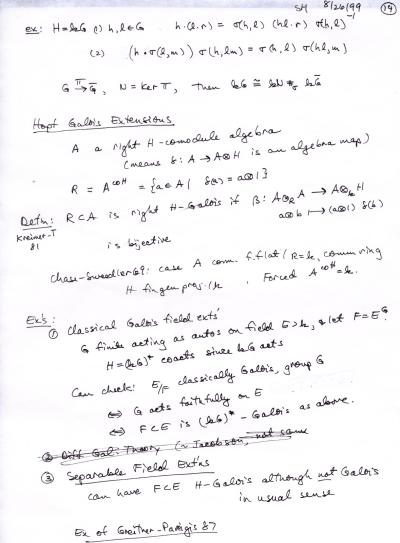 SM 8/26/99 (19)
ex: H = kG (1) h, l ∈ G h·(l·r) = σ(h,l) (hl·r) σ(h,l)⁻¹
(2) (h·σ(l,m)) σ(h,lm) = σ(h,l) σ(hl,m)
G →π Ḡ, N = Ker π, then kG ≅ kN #σ kḠ
Hopf Galois Extensions
A a right H-comodule algebra
(means δ: A → A⊗H is an algebra map)
R = A^coH = {a∈A | δ(a) = a⊗1}
Defn: R⊂A is right H-Galois if β: A⊗_R A → A⊗_k H
Kreimer-T a⊗b ↦ (a⊗1) δ(b)
81 is bijective
Chase-Sweedler 69: case A comm. f.flat / R=k, comm ring
H fin gen proj. /k, Forced A^coH = k.
Ex's:
① Classical Galois field exts'
G finite acting as autos on field E>k, & let F = E^G.
H = (kG)* coacts since kG acts
Can check: E/F classically Galois, group G
⇔ G acts faithfully on E
⇔ F⊂E is (kG)*-Galois as above.
② Diff Gal. Theory (~ Jacobson, not same
③ Separable Field Extns
can have F⊂E H-Galois although not Galois
in usual sense
Ex of Greither-Pareigis 87